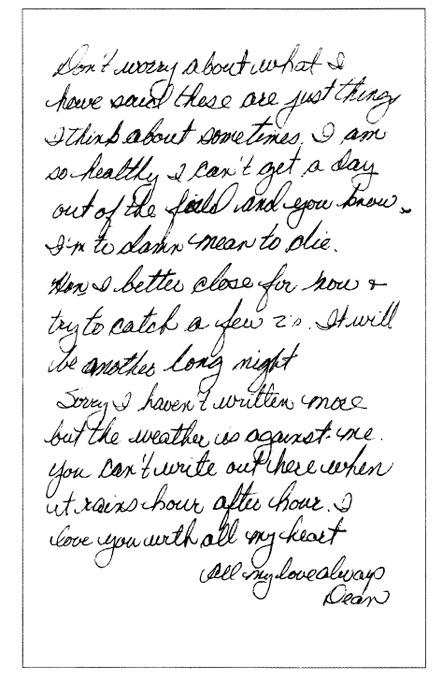 Don't worry about what I
have said these are just things
I think about sometimes. I am
so healthy I can't get a day
out of the field and you know
I'm to damn mean to die.
Hon I better close for now +
try to catch a few z's. It will
be another long night
Sorry I haven't written more
but the weather is against me.
You can't write out here when
it rains hour after hour. I
love you with all my heart
All my love always
Dean